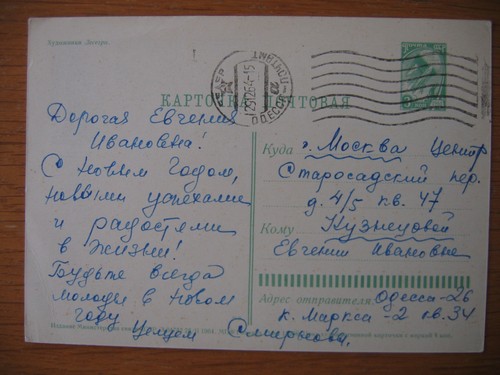 Художник Лесегри
КАРТОЧКА ПОЧТОВАЯ
ОДЕССА
Дорогая Евгения
Ивановна!
С Новым Годом,
новыми успехами
и радостями
в жизни!
Будьте всегда
молоды в Новом
году
Целуем Смирнова.
Куда г. Москва Центр
Старосадский пер.
д. 4/5 кв. 47
Кому Кузнецовой
Евгении Ивановне
Адрес отправителя: Одесса-26
К. Маркса-2 кв. 34